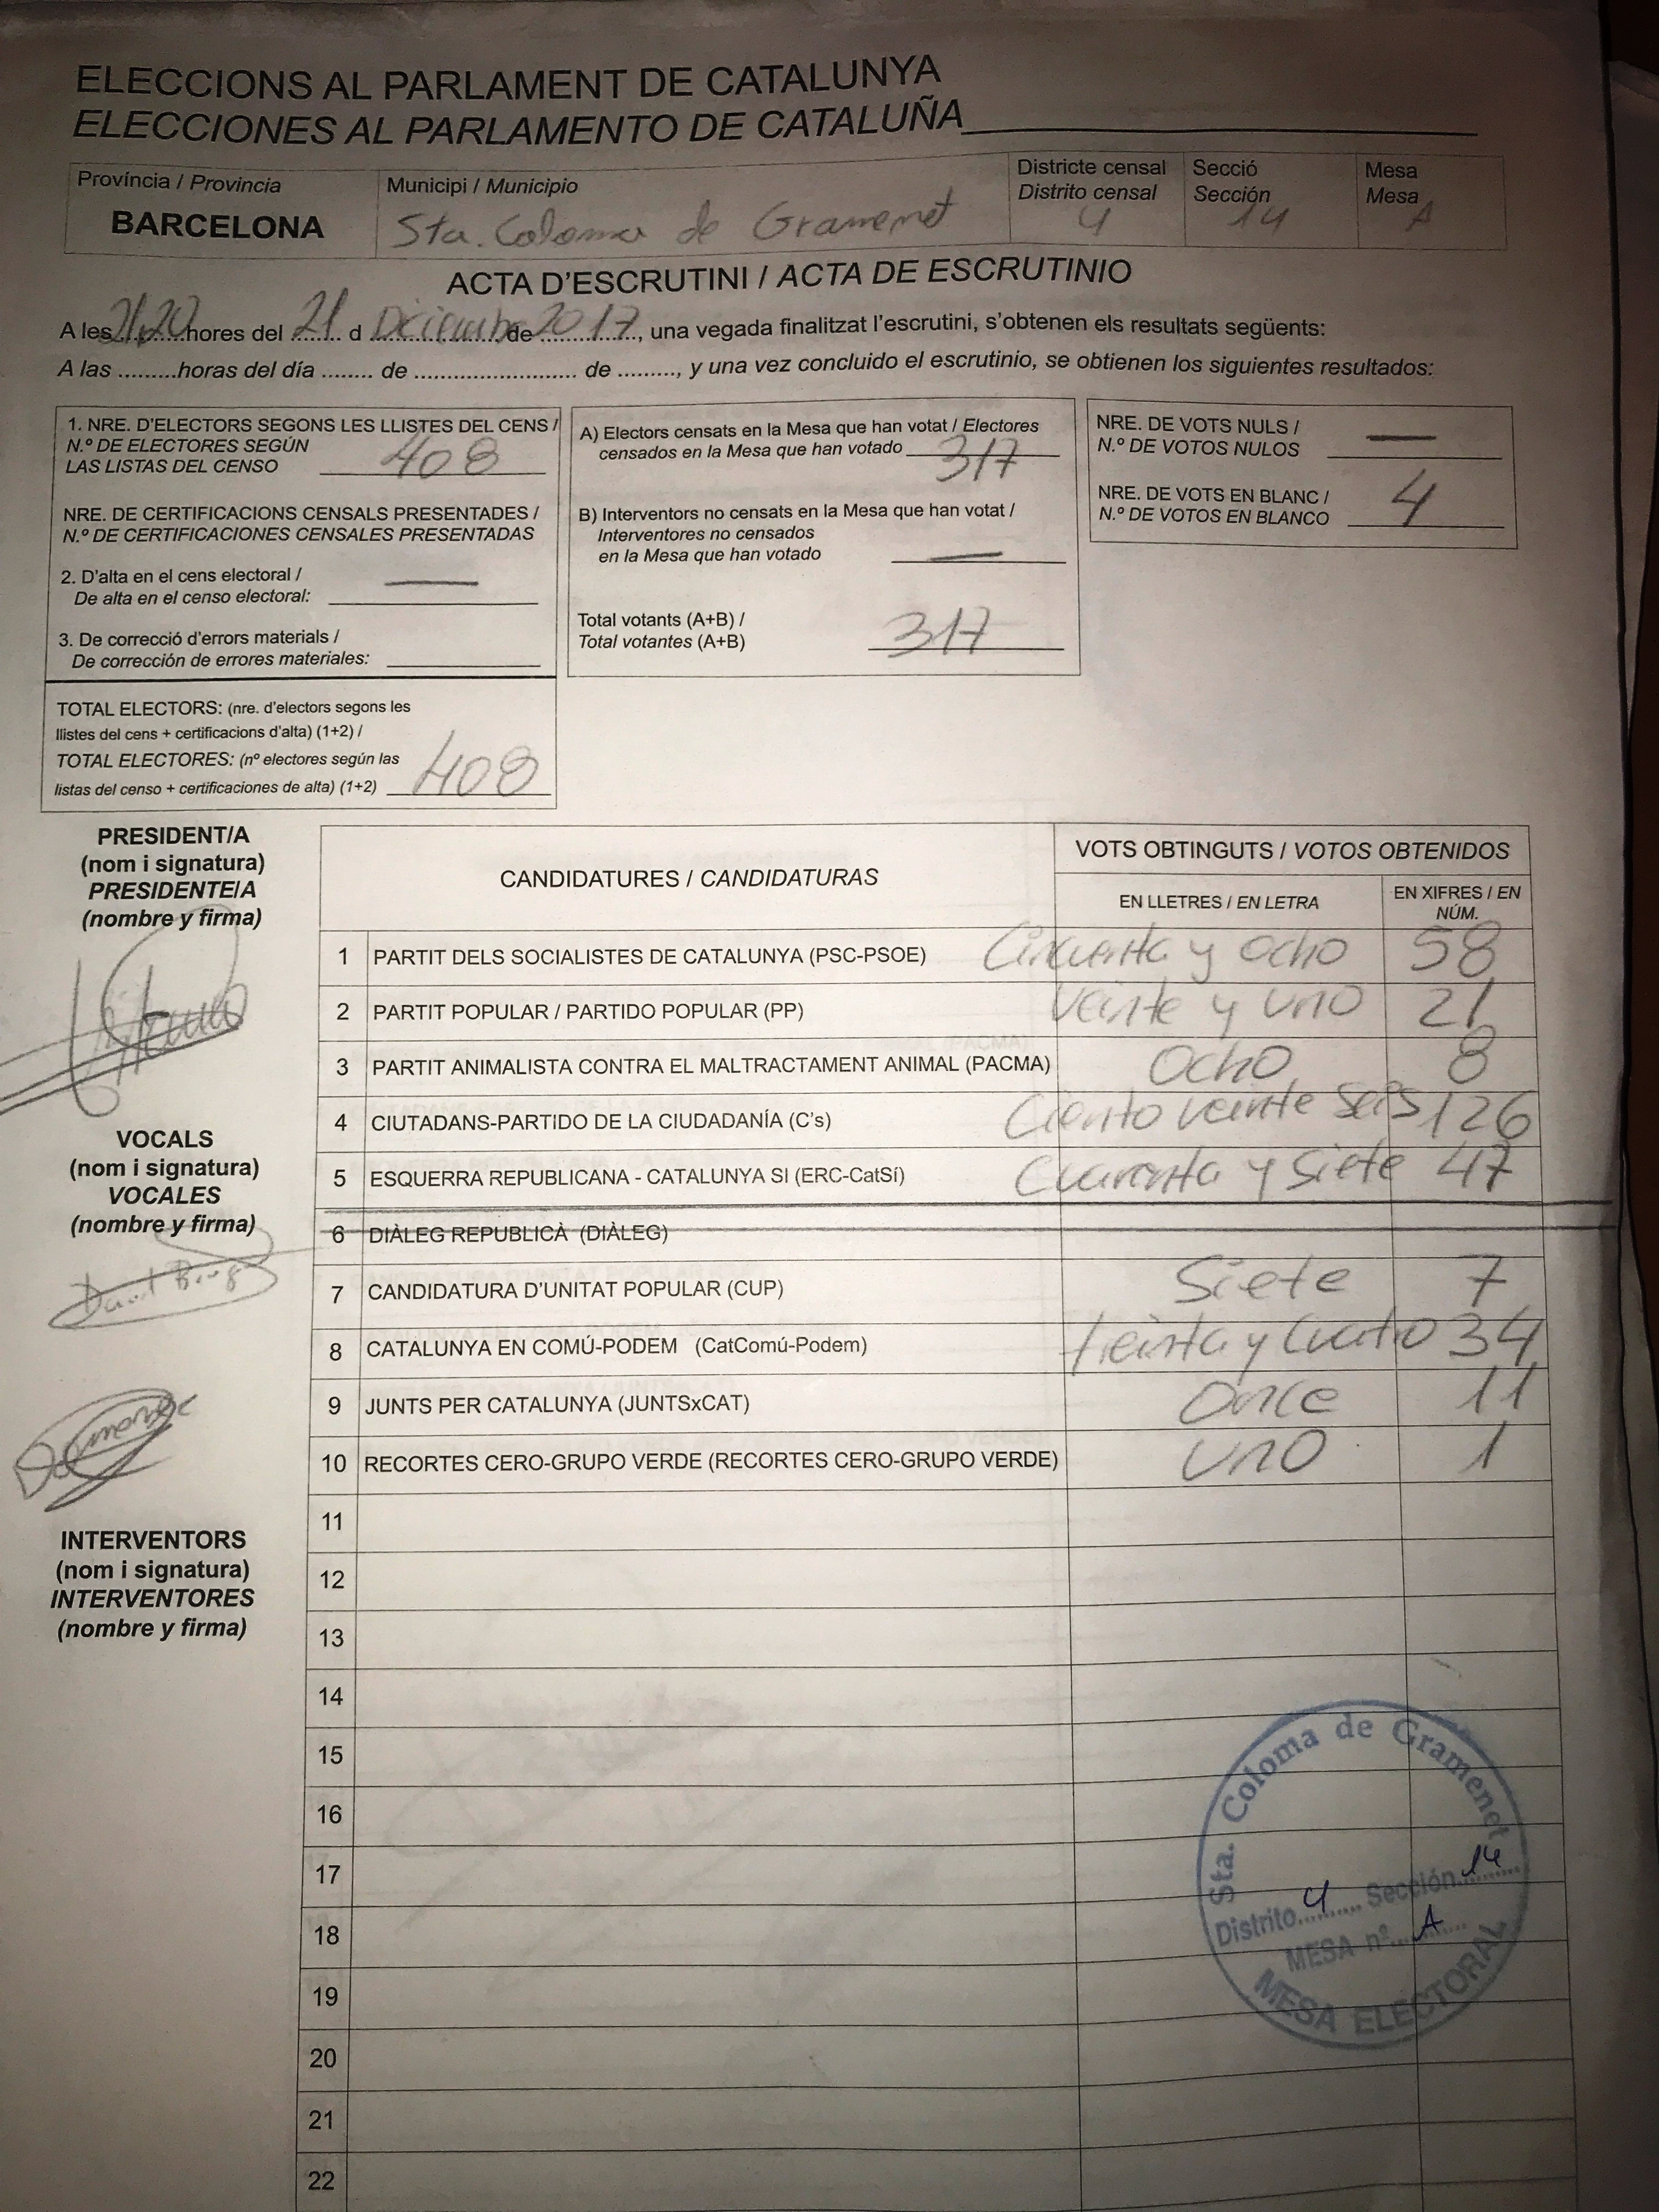 ELECCIONS AL PARLAMENT DE CATALUNYA
ELECCIONES AL PARLAMENTO DE CATALUÑA
Província / Provincia
BARCELONA
Municipi / Municipio
Sta. Coloma de Gramenet
Districte censal
Distrito censal
4
Secció
Sección
14
Mesa
Mesa
A
ACTA D'ESCRUTINI / ACTA DE ESCRUTINIO
A les 21,20 hores del 21 d Diciembre de 2017, una vegada finalitzat l'escrutini, s'obtenen els resultats següents:
A las .........horas del día ........ de .......................... de ........., y una vez concluido el escrutinio, se obtienen los siguientes resultados:
1. NRE. D'ELECTORS SEGONS LES LLISTES DEL CENS /
N.º DE ELECTORES SEGÚN
LAS LISTAS DEL CENSO 408
NRE. DE CERTIFICACIONS CENSALS PRESENTADES /
N.º DE CERTIFICACIONES CENSALES PRESENTADAS
2. D'alta en el cens electoral /
De alta en el censo electoral: —
3. De correcció d'errors materials /
De corrección de errores materiales:
TOTAL ELECTORS: (nre. d'electors segons les
llistes del cens + certificacions d'alta) (1+2) /
TOTAL ELECTORES: (nº electores según las
listas del censo + certificaciones de alta) (1+2) 408
A) Electors censats en la Mesa que han votat / Electores
censados en la Mesa que han votado 317
B) Interventors no censats en la Mesa que han votat /
Interventores no censados
en la Mesa que han votado —
Total votants (A+B) /
Total votantes (A+B) 317
NRE. DE VOTS NULS /
N.º DE VOTOS NULOS —
NRE. DE VOTS EN BLANC /
N.º DE VOTOS EN BLANCO 4
PRESIDENT/A
(nom i signatura)
PRESIDENTE/A
(nombre y firma)
VOCALS
(nom i signatura)
VOCALES
(nombre y firma)
INTERVENTORS
(nom i signatura)
INTERVENTORES
(nombre y firma)
CANDIDATURES / CANDIDATURAS
VOTS OBTINGUTS / VOTOS OBTENIDOS
EN LLETRES / EN LETRA
EN XIFRES / EN
NÚM.
1 PARTIT DELS SOCIALISTES DE CATALUNYA (PSC-PSOE) Cincuenta y ocho 58
2 PARTIT POPULAR / PARTIDO POPULAR (PP) veinte y uno 21
3 PARTIT ANIMALISTA CONTRA EL MALTRACTAMENT ANIMAL (PACMA) Ocho 8
4 CIUTADANS-PARTIDO DE LA CIUDADANÍA (C's) Ciento veinte seis 126
5 ESQUERRA REPUBLICANA - CATALUNYA SI (ERC-CatSí) Cuarenta y siete 47
6 DIÀLEG REPUBLICÀ (DIÀLEG)
7 CANDIDATURA D'UNITAT POPULAR (CUP) Siete 7
8 CATALUNYA EN COMÚ-PODEM (CatComú-Podem) treinta y cuatro 34
9 JUNTS PER CATALUNYA (JUNTSxCAT) Once 11
10 RECORTES CERO-GRUPO VERDE (RECORTES CERO-GRUPO VERDE) uno 1
11
12
13
14
15
16
17
18
19
20
21
22
Sta. Coloma de Gramenet
Distrito 4 Sección 14
MESA nº A
MESA ELECTORAL